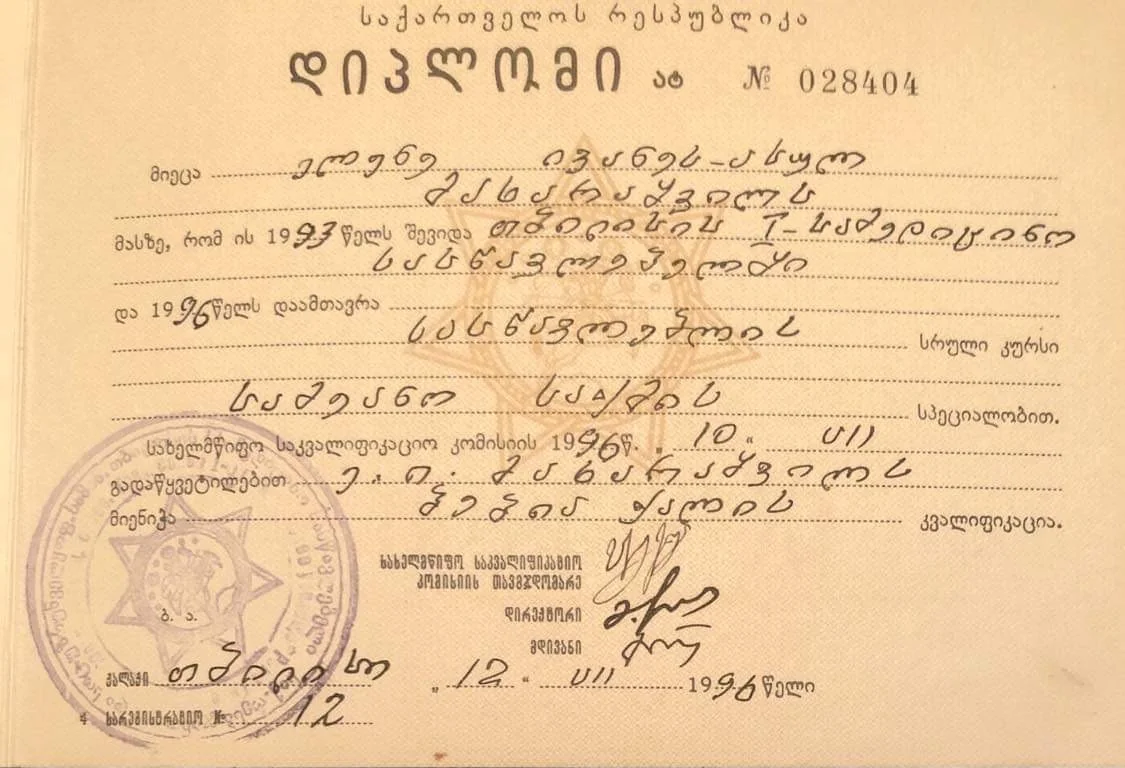 საქართველოს რესპუბლიკა
დიპლომი ატ № 028404
მიეცა ელენე ივანეს-ასულ
მახარაშვილს
მასზე, რომ ის 1993 წელს შევიდა თბილისის I-სამედიცინო
სასწავლებელში
და 1996 წელს დაამთავრა
სასწავლებლის სრული კურსი
სამეანო საქმის სპეციალობით.
სახელმწიფო საკვალიფიკაციო კომისიის 1996 წ. „ 10 “ VII
გადაწყვეტილებით ე. ი. მახარაშვილს
მიენიჭა ბებია ქალის კვალიფიკაცია.
სახელმწიფო საკვალიფიკაციო
კომისიის თავმჯდომარე
დირექტორი
მდივანი
ბ. ა.
ქალაქი თბილისი „ 12 “ VII 1996 წელი
4 სარეგისტრაციო № 12